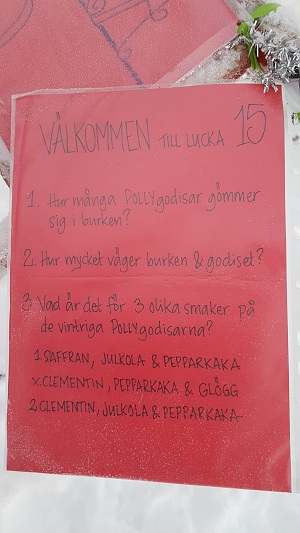 VÄLKOMMEN TILL LUCKA 15
1. Hur många POLLYgodisar gömmer
sig i burken?
2. Hur mycket väger burken & godiset?
3. Vad är det för 3 olika smaker på
de vintriga POLLYgodisarna?
1. SAFFRAN, JULKOLA & PEPPARKAKA
X. CLEMENTIN, PEPPARKAKA & GLÖGG
2. CLEMENTIN, JULKOLA & PEPPARKAKA